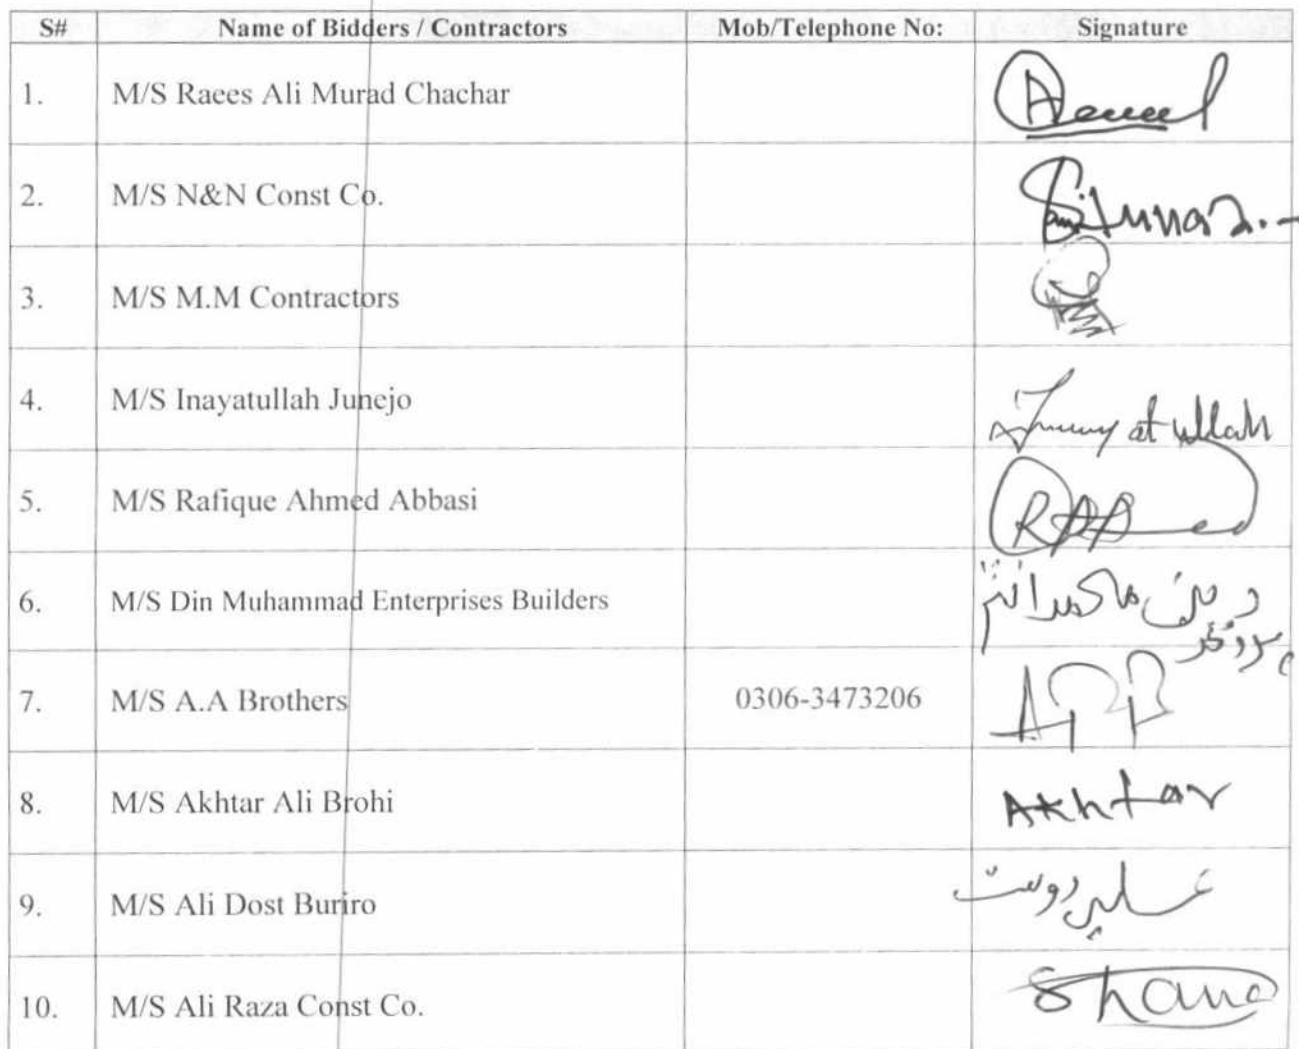 S# Name of Bidders / Contractors Mob/Telephone No: Signature
1. M/S Raees Ali Murad Chachar
2. M/S N&N Const Co.
3. M/S M.M Contractors
4. M/S Inayatullah Junejo
5. M/S Rafique Ahmed Abbasi
6. M/S Din Muhammad Enterprises Builders
7. M/S A.A Brothers 0306-3473206
8. M/S Akhtar Ali Brohi Akhtar
9. M/S Ali Dost Buriro علي دوست
10. M/S Ali Raza Const Co.